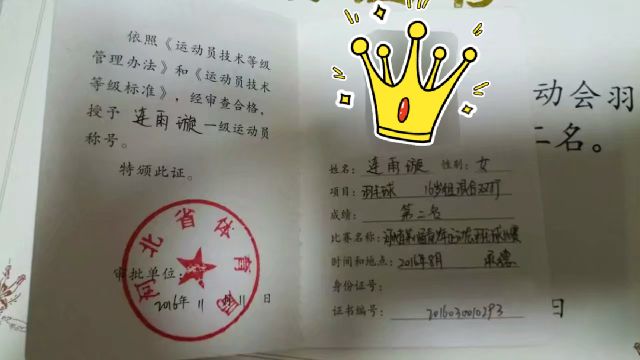 依照《运动员技术等级
管理办法》和《运动员技术
等级标准》，经审查合格，
授予 连雨漩 一级运动员
称号。
特颁此证。
河北省体育局
审批单位：
2016年 11月 11日
姓名： 连雨漩 性别： 女
项目： 羽毛球 16岁组混合双打
成绩： 第二名
比赛名称：
时间和地点： 2016年8月 承德
身份证号：
证书编号： 2016030010293
动会羽
二名。
日